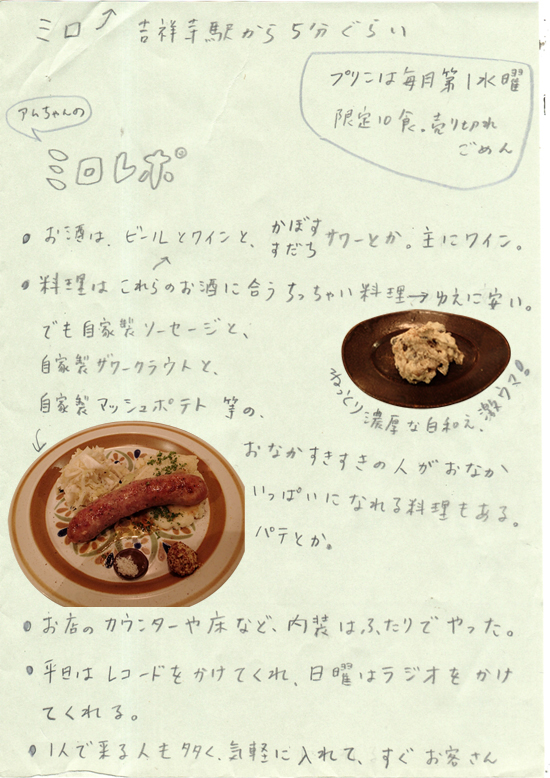 ミロ↗ 吉祥寺駅から5分ぐらい
プリンは毎月第1水曜
限定10食。売り切れ
ごめん
アムちゃんの
ミロレポ
• お酒は、ビールとワインと、かぼすすだちサワーとか。主にワイン。
• 料理はこれらのお酒に合うちっちゃい料理→ゆえに安い。
でも自家製ソーセージと、
自家製ザワークラウトと、
自家製マッシュポテト等の、
ねっとり濃厚な白和え、激ウマ!
おなかすきすきの人がおなか
いっぱいになれる料理もある。
パテとか。
• お店のカウンターや床など、内装はふたりでやった。
• 平日はレコードをかけてくれ、日曜はラジオをかけ
てくれる。
• 1人で来る人も多く、気軽に入れて、すぐお客さん